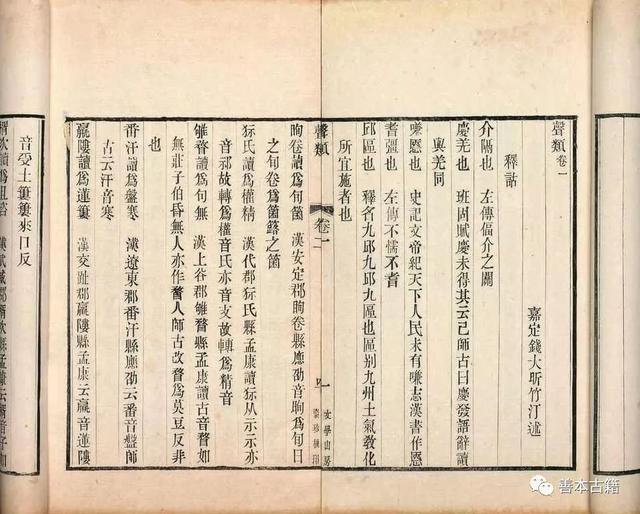 聲類卷一
嘉定錢大昕竹汀述
釋詁
介隔也　左傳偪介之關
慶羌也　班固賦慶未得其云已師古曰慶發語辭讀
與羌同
嗛慝也　史記文帝紀天下人民未有嗛志漢書作慝
耆彊也　左傳不懦不耆
邱區也　釋名九邱九區也區别九州土氣教化
所宜施者也
聲類
卷一
一
文學山房
聚珍板印
眴卷讀爲旬箘　漢安定郡眴卷縣應劭音眴爲旬日
之旬卷爲箘簬之箘
狋氏讀爲權精　漢代郡狋氏縣孟康讀狋从示示亦
音祁故轉爲權音氏亦音支故轉爲精音
雊瞀讀爲句無　漢上谷郡雊瞀縣孟康讀古音瞀如
無莊子伯昏無人亦作瞀人師古改瞀爲莫豆反非
也
番汗讀爲盤寒　漢遼東郡番汗縣應劭云番音盤師
古云汗音寒
羸𨻻讀爲蓮䉤　漢交趾郡羸𨻻縣孟康云羸音蓮𨻻
音受土簍簍來口反